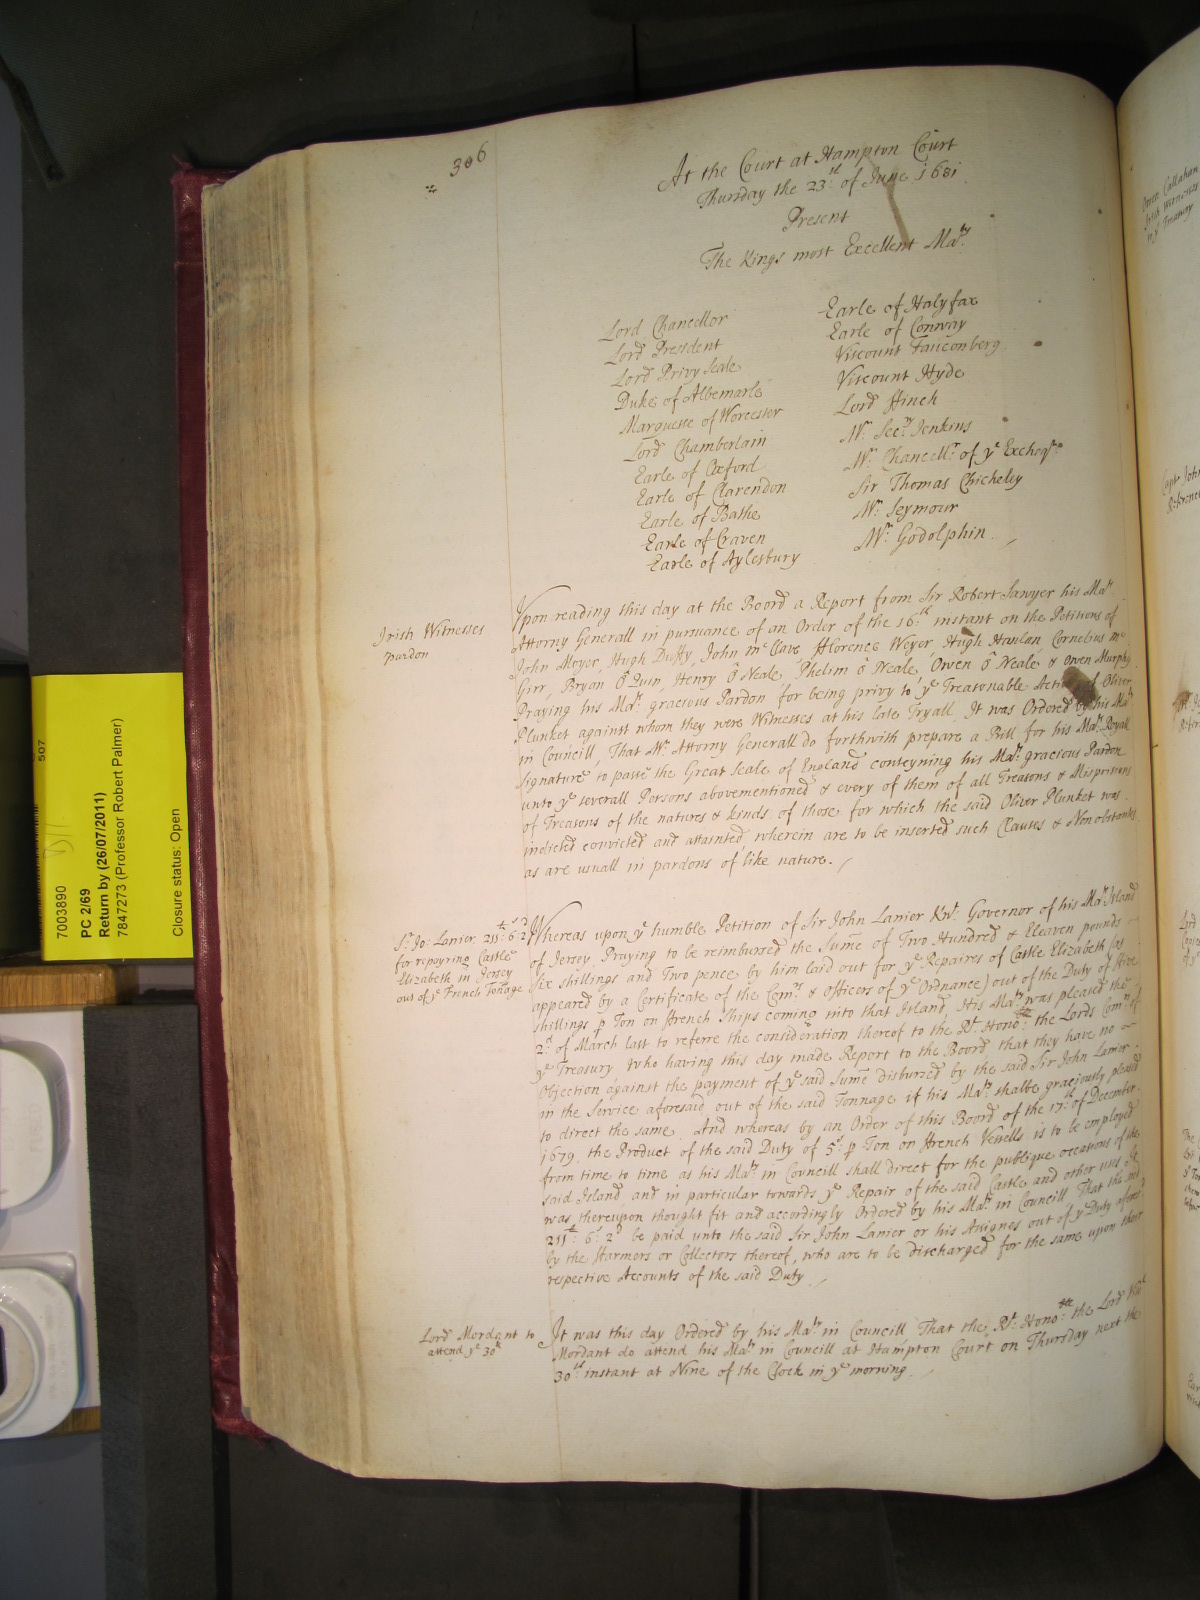 306
At the Court at Hampton Court
Thursday the 23th of June 1681
Present
The Kings most Excellent Maty
Lord Chancellor
Lord President
Lord Privy Seale
Duke of Albemarle
Marquesse of Worcester
Lord Chamberlain
Earle of Oxford
Earle of Clarendon
Earle of Bathe
Earle of Craven
Earle of Aylesbury
Earle of Halyfax
Earle of Conway
Viscount Fauconberg
Viscount Hyde
Lord Finch
Mr Secry Jenkins
Mr Chancellr of ye Excheqr
Sir Thomas Chicheley
Mr Seymour
Mr Godolphin
Irish Witnesses
pardon
Upon reading this day at the Board a Report from Sir Robert Sawyer his Mats
Attorny Generall in pursuance of an Order of the 16th instant on the Petitions of
John Moyer, Hugh Duffy, John mcClave, Florence Weyer, Hugh Hanlan, Cornelius mc
Girr, Bryan ô Quin, Henry ô Neale, Phelim ô Neale, Owen ô Neale & Owen Murphy
Praying his Mats gracious Pardon for being privy to ye Treasonable of Oliver
Plunket against whom they were Witnesses at his late Tryall. It was Ordered by his Maty
in Councill, That Mr Attorny Generall do forthwith prepare a Bill for his Mats Royall
signature to passe the Great Seale of England conteyning his Mats gracious Pardon
unto ye severall Persons abovementioned & every of them of all Treasons & Misprisions
of Treasons of the natures & kinds of those for which the said Oliver Plunket was
indicted convicted and attainted, wherein are to be inserted such Clauses & Non obstantes
as are usuall in pardons of like nature.
Sr Jo: Lanier 211li: 6s: 2d
for repayring Castle
Elizabeth in Jersey
out of ye French Tonage
Whereas upon ye humble Petition of Sir John Lanier Knt: Governor of his Mats Island
of Jersey, Praying to be reimbursed the sume of Two Hundred & Eleaven pounds
six shillings and Two pence by him laid out for ye Repaires of Castle Elizabeth (as
appeared by a Certificate of the Comrs & Officers of ye Ordnance) out of the Duty of five
shillings p Ton on French Ships coming into that Island, His Maty was pleased the
2d of March last to referre the consideration thereof to the Rt Honoble the Lords Comrs of
ye Treasury who having this day made Report to the Board, that they have no
Objection against the payment of ye said sume disbursed by the said Sir John Lanier
in the Service aforesaid, out of the said Tonnage if his Maty shalbe graciously pleased
to direct the same. And whereas by an Order of this Board of the 17th of December
1679, the Product of the said Duty of 5s p Ton on French Vessells is to be employed
from time to time as his Maty in Councill shall direct for the publique occations of the
said Island and in particular towards ye Repair of the said Castle and other uses It
was thereupon thought fit and accordingly Ordered by his Maty in Councill That the said
211li: 6s: 2d be paid unto the said Sir John Lanier or his Assignes out of ye Duty aforesd
by the Farmers or Collectors thereof, who are to be discharged for the same upon their
respective Accounts of the said Duty.
Lord Mordant to
attend ye 30th
It was this day Ordered by his Maty in Councill That the Rt Honoble the Lord Visct
Mordant do attend his Maty in Councill at Hampton Court on Thursday next the
30th instant at Nine of the Clock in ye morning.
507
7003890
PC 2/69
Return by (26/07/2011)
7847273 (Professor Robert Palmer)
Closure status: Open
Owen Callahan
Irish Witnesses